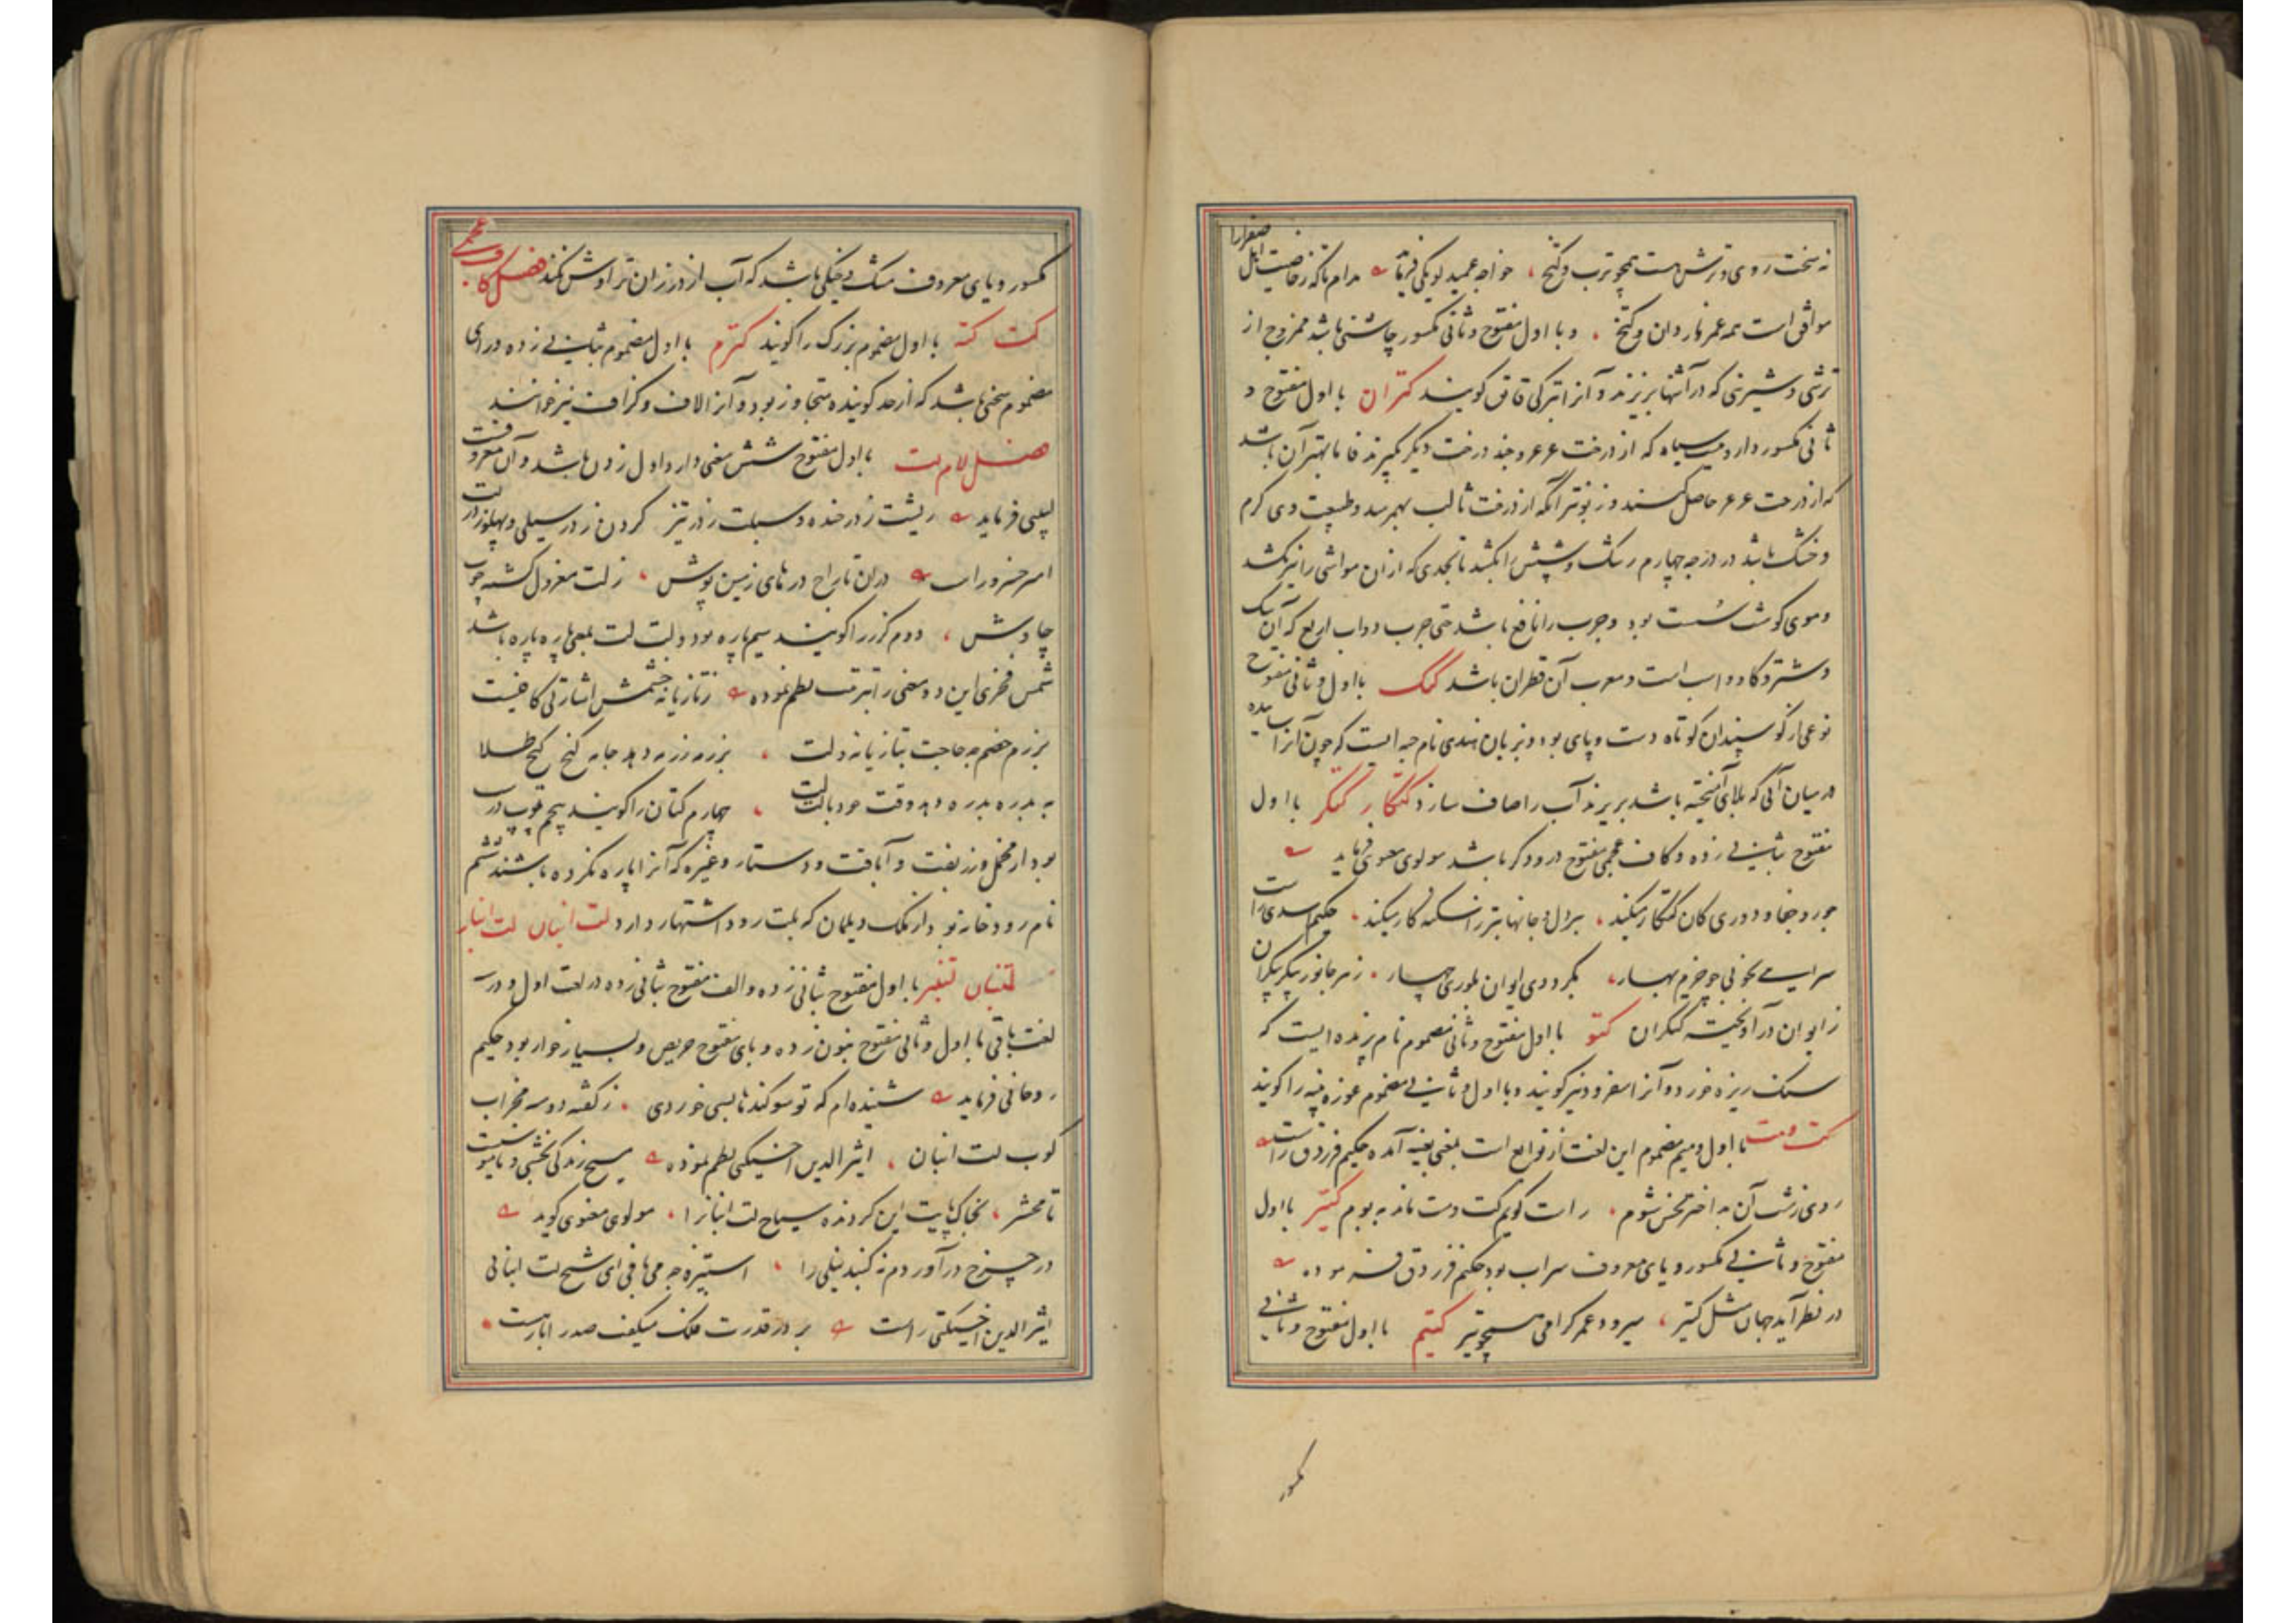 نه سخت روی و ترش هست همچو ترب و کتخ ، خواجه عمید لویکی فرماید مدام تا که ز خاصیت ابل صفرارا
موافق است همه عمر ناردان و کتخ ، و با اول مفتوح و ثانی مکسور چاشنی باشد ممزوج از
ترشی و شیرینی که در آشها بریزند و آنرا بترکی قاتق گویند کتران با اول مفتوح و
ثانی مکسور داروییست سیاه که از درخت عرعر و چند درخت دیگر گیرند فاما بهتر آن باشد
که از درخت عرعر حاصل کنند و زبونتر آنکه از درخت تالب بهمرسد و طبیعت وی گرم
و خشک باشد در درجه چهارم رشک و شپش را بکشد تا بحدی که از ان مواشی را نیز بکشد
و موی گوشت سست بود و جرب را نافع باشد حتی جرب دواب اربع که آن سگ
و شتر و گاو و اسب است و معرب آن قطران باشد کتک با اول و ثانی مفتوح
نوعی از گوسپندان کوتاه دست و پای بود و بزبان هندی نام حبه ایست که چون آنرا ساییده
در میان آبی که بلای آمیخته باشد بریزند آب را صاف سازد کتکار کتکر با اول
مفتوح بثانی زده و کاف عجمی مفتوح درودگر باشد مولوی معنوی فرماید
جور و جفا و دوری کان کنکار میکند ، بر دل و جانها بتر از اسکنه کار میکند ، حکیم اسدی راست
سرایی بخوبی چو خرم بهار ، بگرد وی ایوان بلوری چهار ، ز هر جانور پیکر بیکران
ز ایوان در آویخته کتکران کتو با اول مفتوح و ثانی مضموم نام پرنده ایست که
سنک ریزه خورد و آنرا اسفرود نیز گویند و با اول و ثانی مضموم غوزه پنبه را گویند
کت و مت با اول و میم مضموم این لغت از توابع است بمعنی بعینه آمده حکیم فرزدق راست
روی زشت آن بد اختر نخس شوم ، راست گویم کت و مت ماند به بوم کتیر با اول
مفتوح و ثانی مکسور و یای معروف سراب بود حکیم فرزدق فرموده
در نظر آید جهان مثل کتیر ، میرود عمر گرامی همچو تیر کتیم با اول مفتوح و ثانی
مکسور
مکسور و یای معروف مشک و خیکی باشد که آب از درزان تراوش نکند فصل کاف عجمی
کت کته با اول مضموم بزرک را گویند کترم با اول مضموم بثانی زده و رای
مضموم سخنی باشد که از حد گوینده متجاوز بود و آنرا لاف و گزاف نیز خوانند
فصل لام لت با اول مفتوح شش معنی دارد اول زدن باشد و آن معروفست
لبیبی فرماید ریشت ز در خنده و سبلت ز در تیز گردن ز در سیلی و پهلو ز در لت
امیر خسرو راست دران تاراج درهای زمین پوش ، ز لت معزول گشته چوب
چاوش ، دوم گرز را گویند سیم پاره بود و لت لت بمعنی پاره پاره باشد
شمس فخری این دو معنی را بترتیب نظم نموده ز تازیانه خشمش اشارتی کافیست
برزم خصم چه حاجت بتازیانه و لت ، بزرمه زرمه دهد جامه گنج گنج طلا
به بدره بدره دهد وقت جود بالت لت ، چهارم کتان را گویند پنجم توپ درست
بود از مخمل و زربفت و آبافت و دستار و غیره که آنرا پاره نکرده باشند ششم
نام رودخانه بود از ملک دیلمان که بلت رود اشتهار دارد لت انبان لت انبار
لتنبان لتنبر با اول مفتوح بثانی زده و الف مفتوح بثانی زده در لغت اول و در سه
لغت باقی با اول و ثانی مفتوح بنون زده و بای مفتوح حریص و بسیار خوار بود حکیم
روحانی فرماید شنیده ام که تو سوگندها بسی خوردی ، ز گفته دو سه محراب
کوب لت انبان ، اثیر الدین اخسیکتی نظم نموده مسیح زندگی بخشی و ناموست
تا محشر ، بخاک پایت این گردنده سیاح لت انبانرا ، مولوی معنوی گوید
در چرخ در آوردم نه گنبد نیلی را ، استیزه چه می بافی ای شیخ لت انبانی
اثیر الدین اخسیکتی راست بر درقدرت فلک میگفت صدر انبارست ،